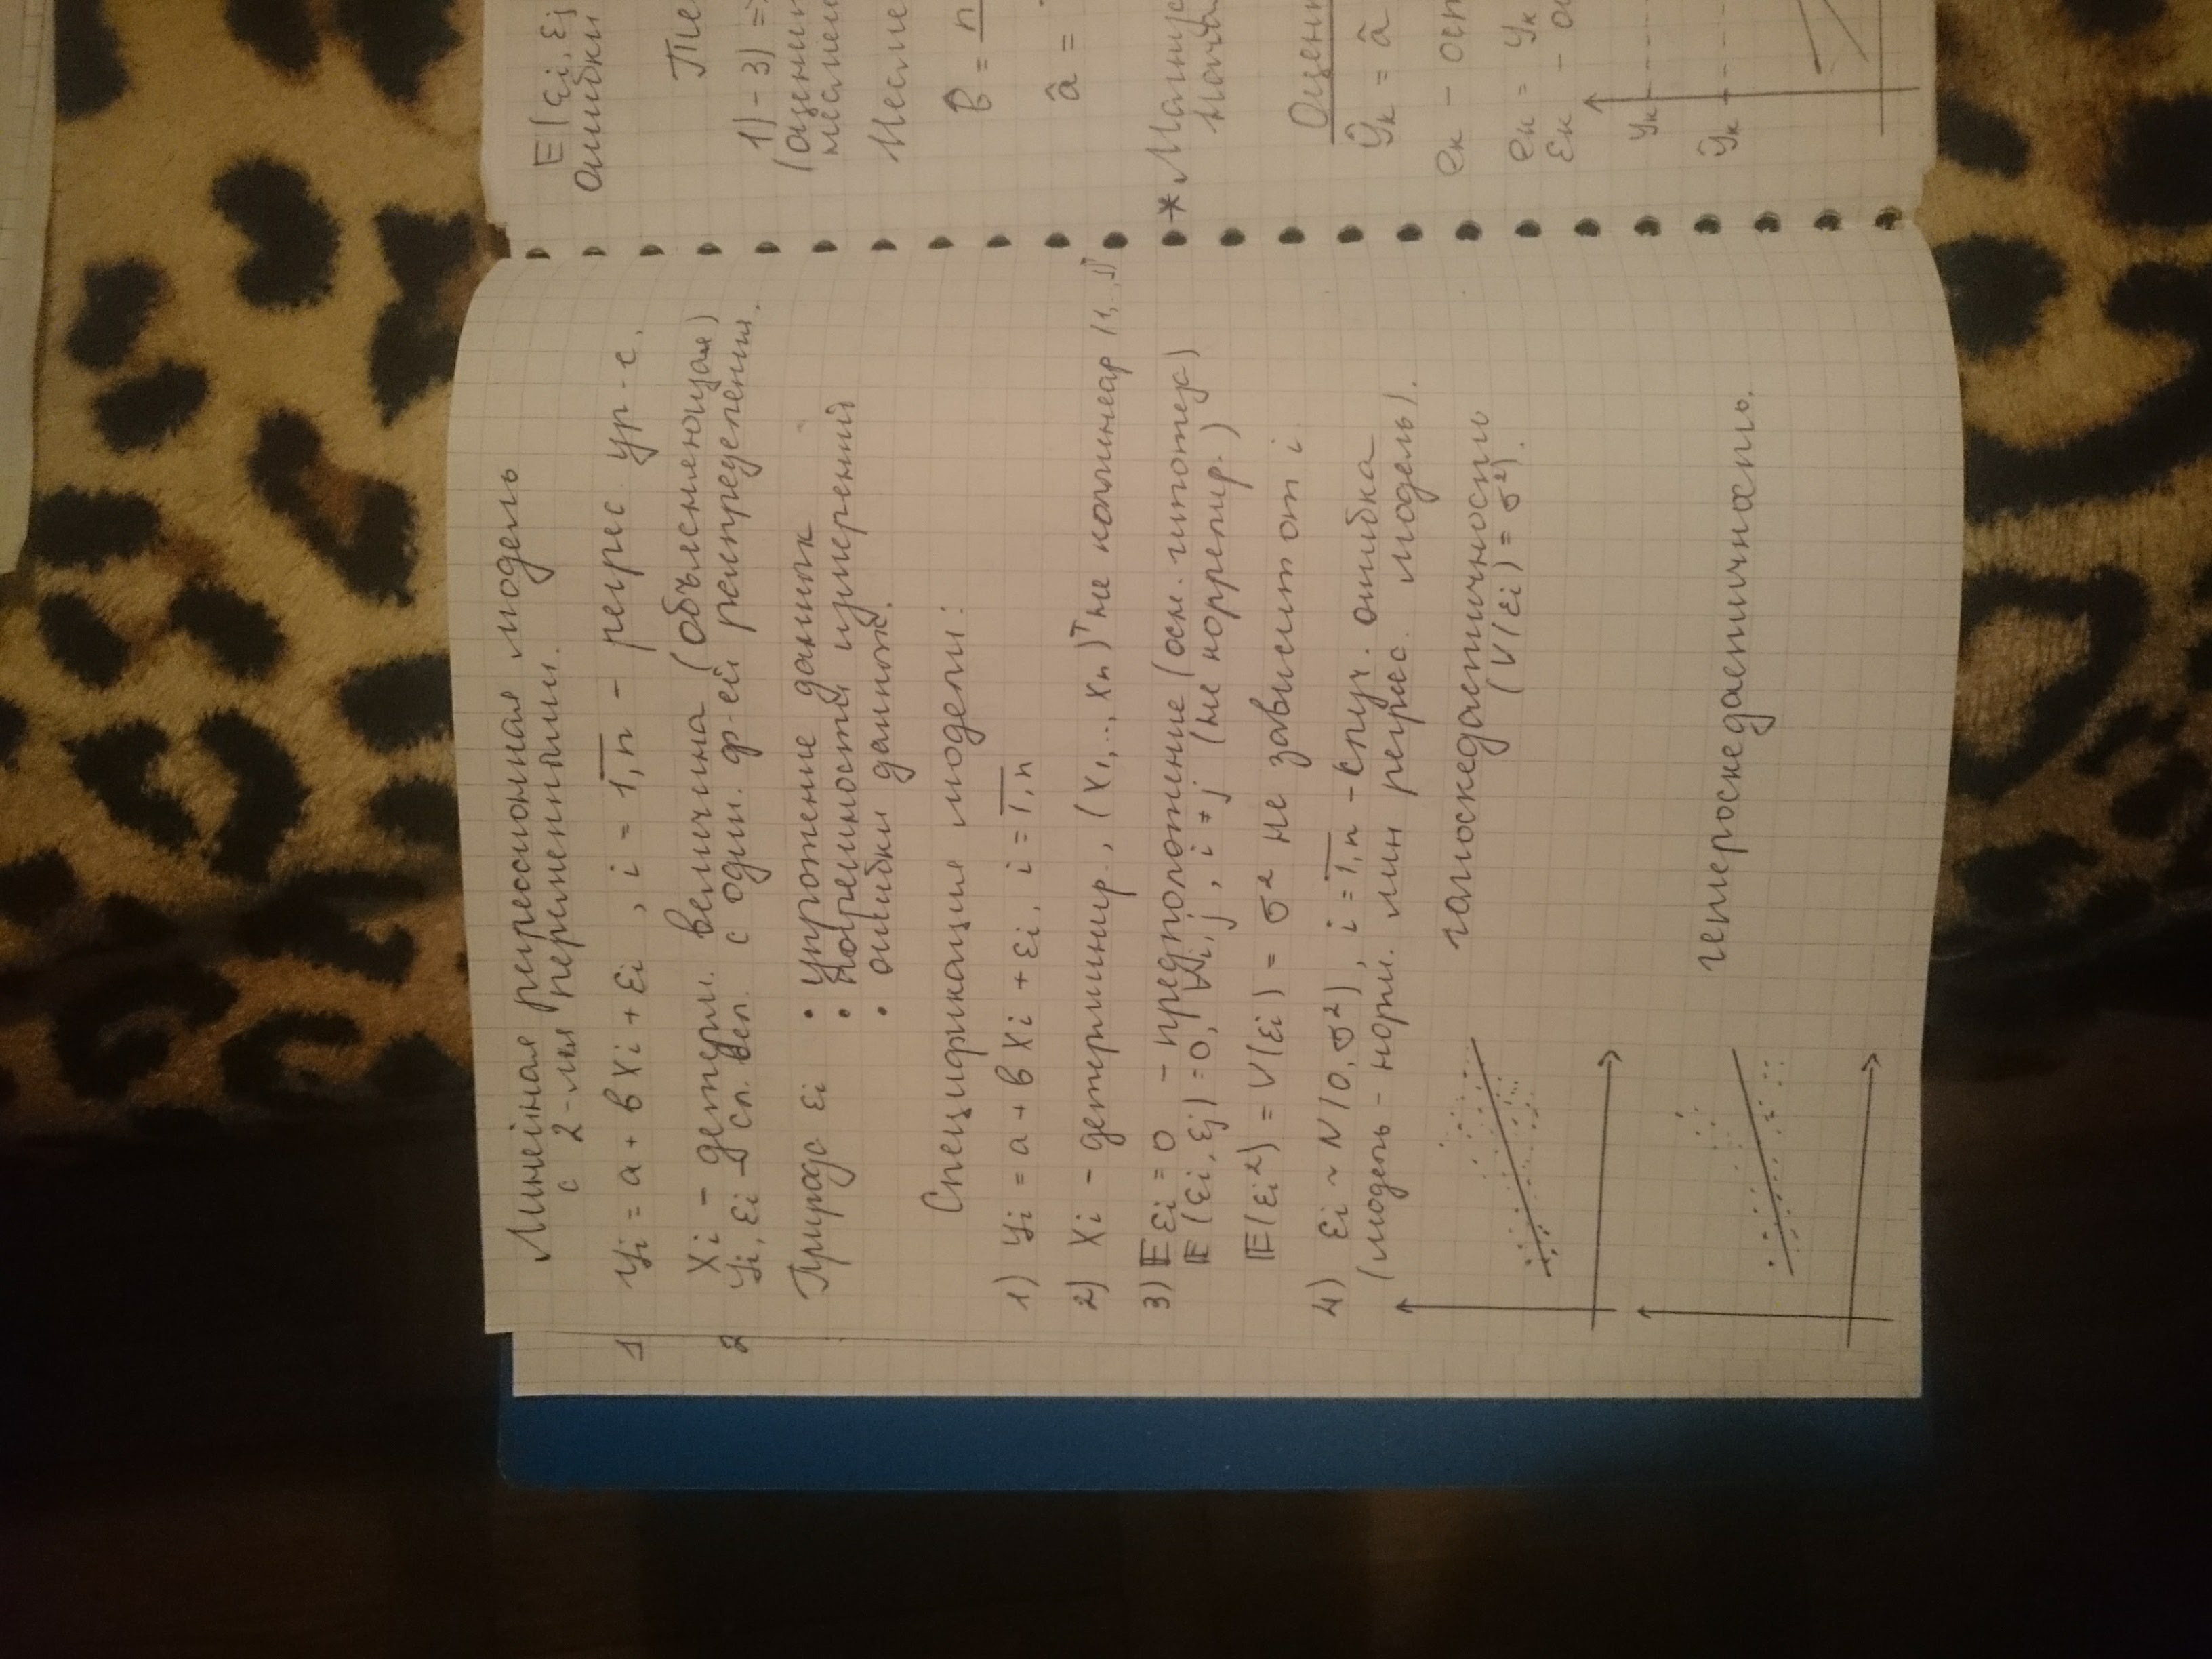 Линейная регрессионная модель
с 2-мя переменными.
1 yᵢ = a + bxᵢ + εᵢ , i = 1,n̅ - регрес ур-е.
2 xᵢ - детерм. величина (объясняющая)
yᵢ, εᵢ - сл. вел. с один. ф-ей распределения.
Природа εᵢ • упрощение данных
• погрешности измерений
• ошибки данных.
Спецификация модели:
1) yᵢ = a + bxᵢ + εᵢ, i = 1,n̅
2) xᵢ - детерминир., (x₁,..,xₙ)ᵀ не коллинеар (1,..,1)ᵀ
3) 𝔼εᵢ = 0 - предположение (осн. гипотеза)
𝔼(εᵢ, εⱼ) = 0, ∀i,j, i ≠ j (не коррелир.)
𝔼(εᵢ²) = V(εᵢ) = σ² не зависит от i
4) εᵢ ~ N(0, σ²), i = 1,n̅ - случ. ошибка
(модель - норм. лин регрес. модель).
гомоскедастичность
(V(εᵢ) = σ²).
гетероскедастичность.
𝔼(εᵢ, εⱼ
Ошибки
1) - 3) =>
b̂ = n
â =
*
ŷₖ = â
eₖ - ост
eₖ = yₖ
εₖ - о
yₖ
ŷₖ